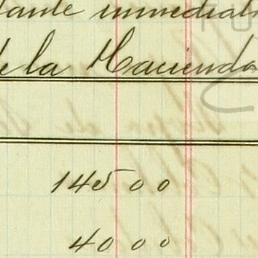 tante inmediat
de la Hacienda
145 00
40 00